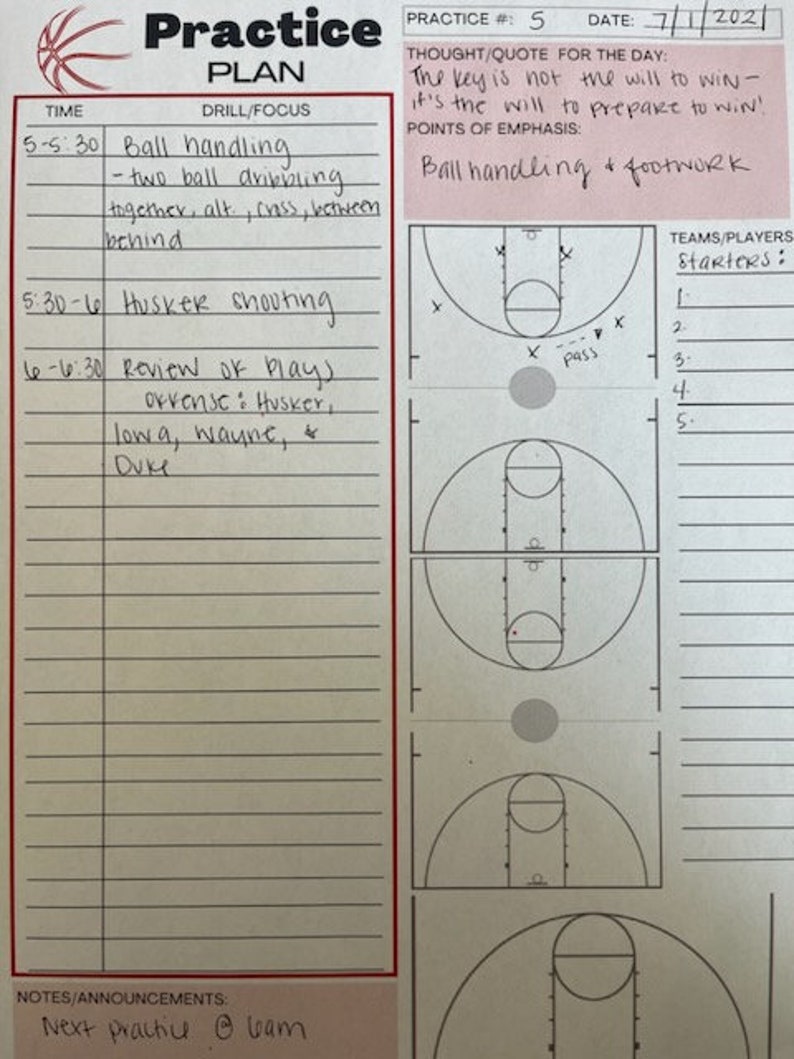 Practice
PLAN
PRACTICE #: 5 DATE: 7/1/2021
THOUGHT/QUOTE FOR THE DAY:
The key is not the will to win –
it's the will to prepare to win!
POINTS OF EMPHASIS:
Ballhandling & footwork
TIME DRILL/FOCUS
5-5:30 Ball handling
- two ball dribbling
together, alt., cross, between
behind
5:30-6 Husker shooting
6-6:30 Review of plays
offense: Husker,
Iowa, Wayne, &
Duke
X X
X X
X pass
TEAMS/PLAYERS
Starters:
1.
2.
3.
4.
5.
NOTES/ANNOUNCEMENTS:
Next practice @ 6am